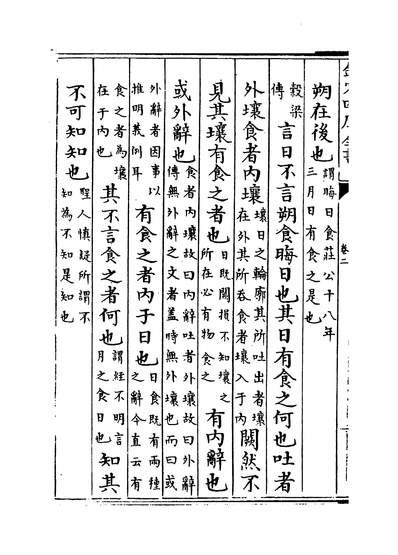 卷二
朔在後也
謂晦日食莊公十八年
三月日有食之是也
穀梁
傳
言日不言朔食晦日也其日有食之何也吐者
外壤食者内壤
壤日之輪廓其所吐出者壤
在外其所吞食者壤入于内
闕然不
見其壤有食之者也
日既闕損不知壤之
所在必有物食之
有内辭也
或外辭也
食者内壤故曰内辭吐者外壤故曰外辭
傳無外辭之文者蓋時無外壤也而曰或
外辭者因事以
推明義例耳
有食之者内于日也
日食既有兩種
之辭今直云有
食之者為壤
在于内也
其不言食之者何也
謂經不明言
月之食日也
知其
不可知知也
聖人慎疑所謂不
知為不知是知也